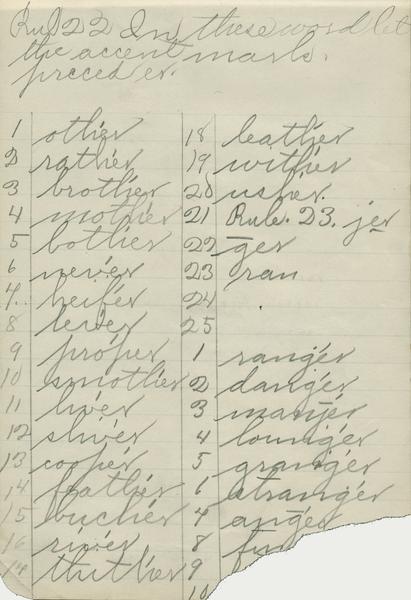 Rul 22 In these word let
the accent mark.
preced er.
1 other
2 rather
3 brother
4 mother
5 bother
6 never
7. heifer
8 lever
9 proper
10 smother
11 liver
12 sliver
13 cooper
14 feather
15 bucher
16 river
17
18 leather
19 wither
20 usher.
21 Rule. 23. jer
22 ger
23 ran
24
25
1 ranger
2 danger
3 manjer
4 lounger
5 granger
6 stranger
7 anger
8
9
10